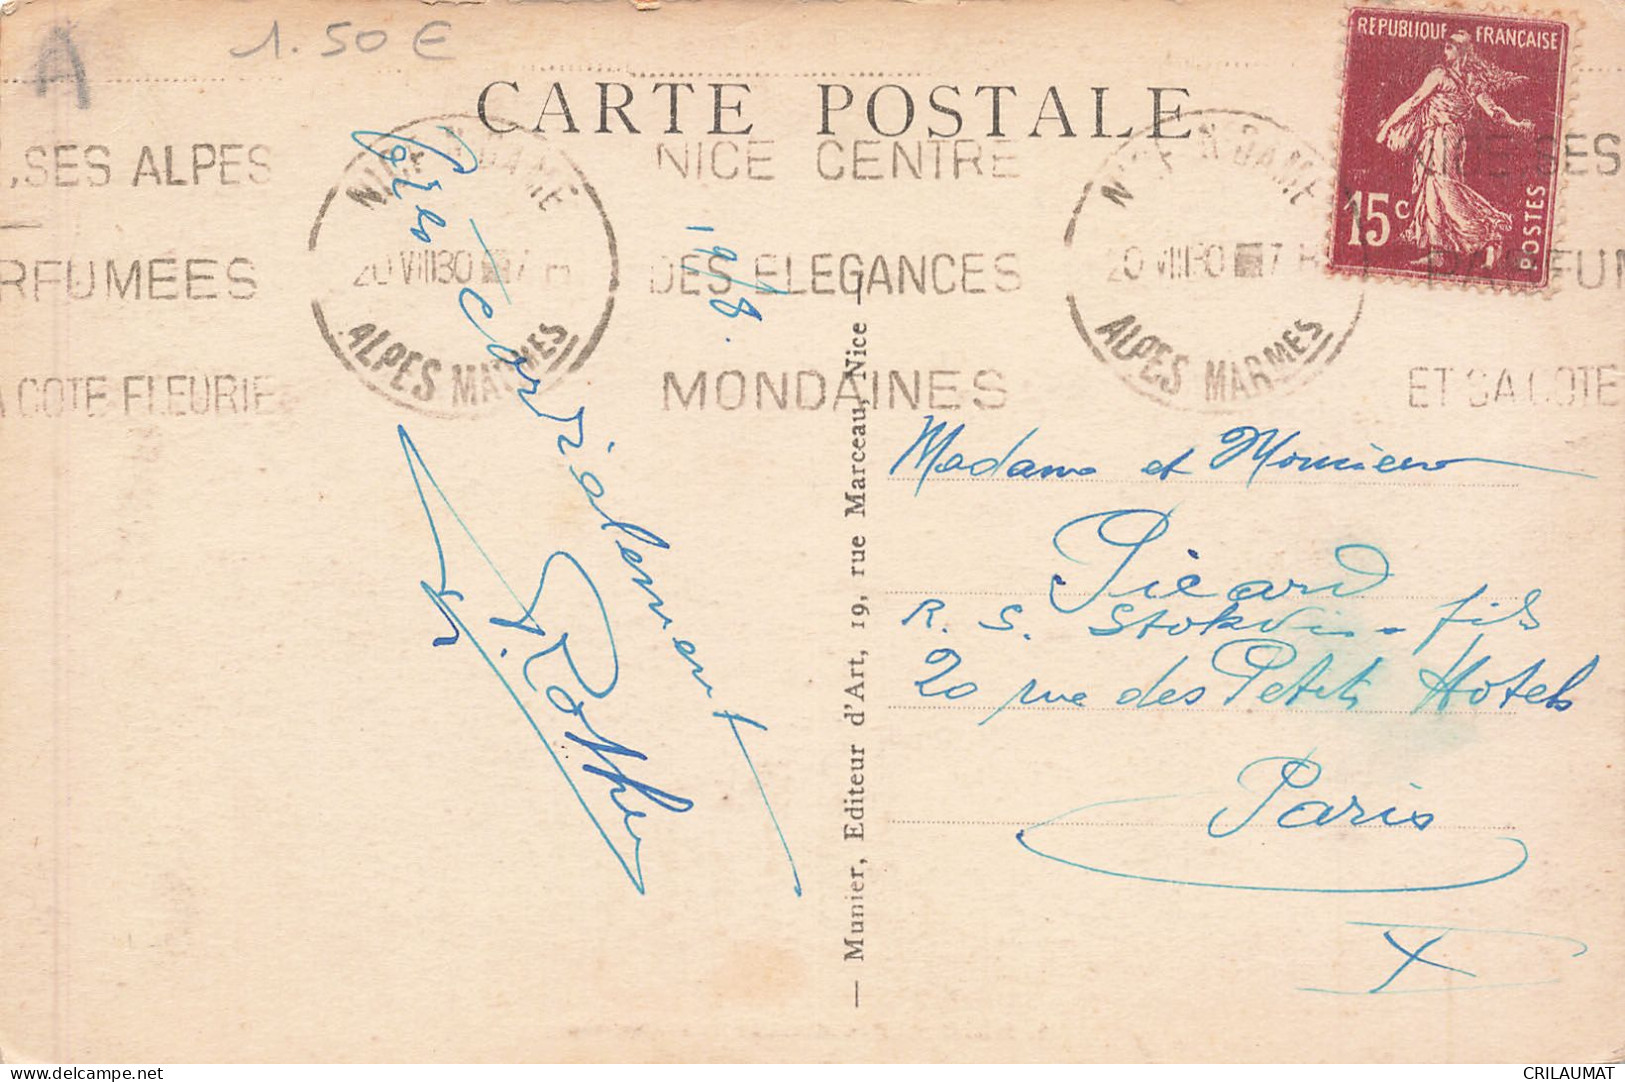 A
1.50 €
CARTE POSTALE
REPUBLIQUE FRANÇAISE
15c
POSTES
SES ALPES
RFUMEES
COTE FLEURIE
NICE N. DAME
20 VIII 30
ALPES MARMES
NICE CENTRE
DES ELEGANCES
MONDAINES
NICE N. DAME
20 VIII 30
ALPES MARMES
NICE SES
PARFUM
ET SA COTE
19/8.
Très cordialement
Madame et Monsieur
Picard
R. S. Stokvis fils
20 rue des Petits Hotels
Paris
X
— Munier, Editeur d'Art, 19, rue Marceau, Nice —
www.delcampe.net
CRILAUMAT